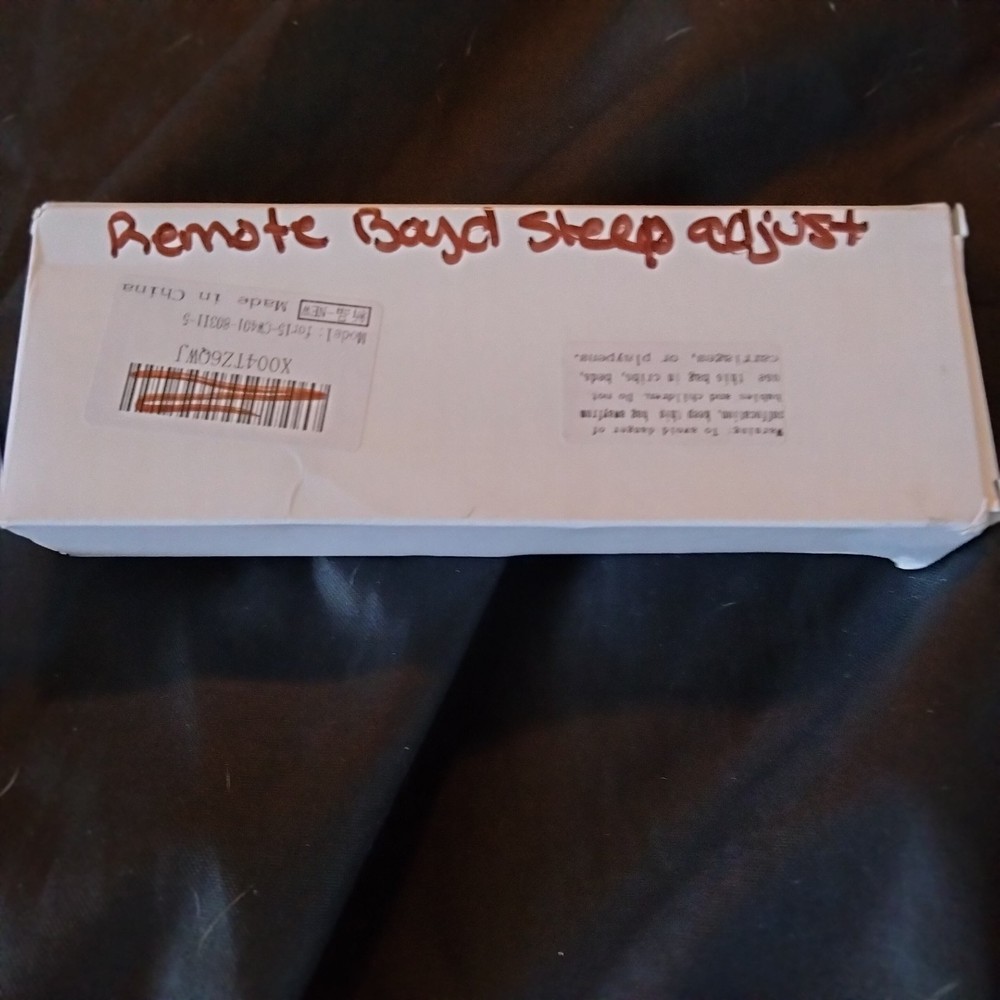 Remote Boyd Sleep adjust
X004TZ6QWJ
Model: for15-CW401-80311-5
新品-NEW Made in China
Warning: To avoid danger of
suffocation, keep this bag away from
babies and children. Do not
use this bag in cribs, beds,
carriages, or playpens.